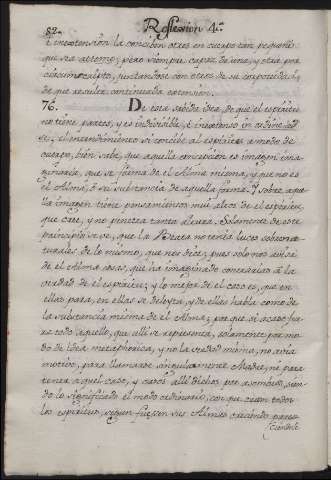 82. Reflexion 4.ª
e inextension la conciben otros en cuerpo tan pequeño
que sea atomo; pero siempre capaz de una, y otra por
circunscripto, juntandose con otros de su corporeidad,
de que resulte continuada extension.
76. De esta sabida idea, de que el espiritu
no tiene partes, y es indivisible, é inextenso in ordine ad
se; el entendimiento si concibe al espiritu a modo de
cuerpo, bien sabe, que aquella concepcion es imagen ima-
ginaria, que se forma de el Alma misma, y que no es
el Alma, ó su substancia de aquella forma. Y sobre aque-
lla imagen tiene pensamientos mui altos de el espiritu,
que cree, y no penetra tanta altura. Solamente de este
principio se ve, que la Beata no tenia luces sobrena-
turales de lo mismo, que nos dice; pues solo nos avisa
de el Alma cosas, que ha imaginado contrarias a la
verdad de el espiritu; y lo mejor de el caso es, que en
ellas para, en ellas se deleyta, y de ellas habla como de
la substancia misma de el Alma; por que si acaso fue-
re todo aquello, que alli se representa, solamente por mo-
do de idea metaphorica, y no la verdad misma, no avia
motivo, para llamarse singularmente Madre, ne para
tener a quel caso, y casos alli dichos por asombro, sien-
do lo significado el modo ordinario, con que crian todos
los espiritus, segun fuessen sus Almas creciendo, pares-
ciendole